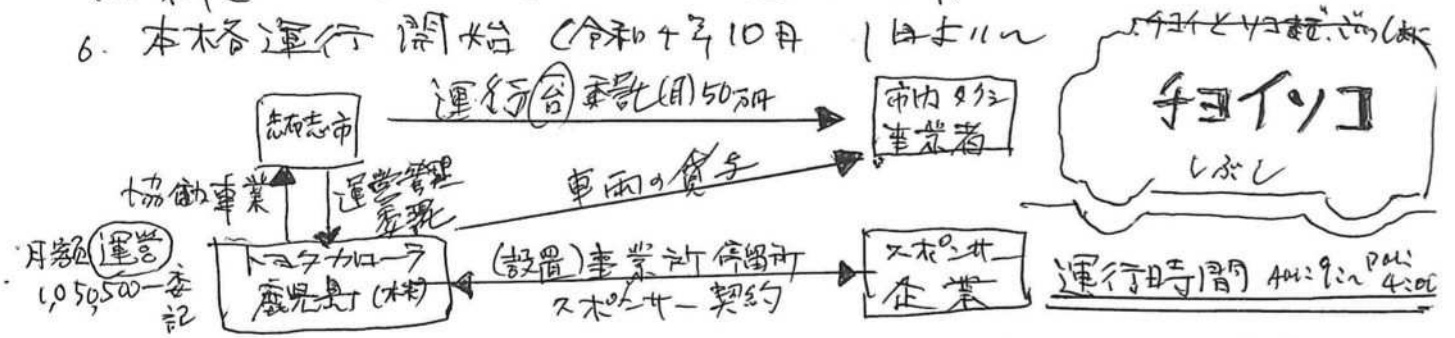 6. 本格運行開始 (令和4年10月1日より〜
チョイとソコまでごいっしょに
チョイソコ
しぶし
志布志市
運行(台)委託(月)50万円
市内タクシー
事業者
協働事業
運営管理
委託
車両の貸与
月額運営
1,050,500-委
託
トヨタカローラ
鹿児島(株)
(設置)事業所停留所
スポンサー契約
スポンサー
企業
運行時間